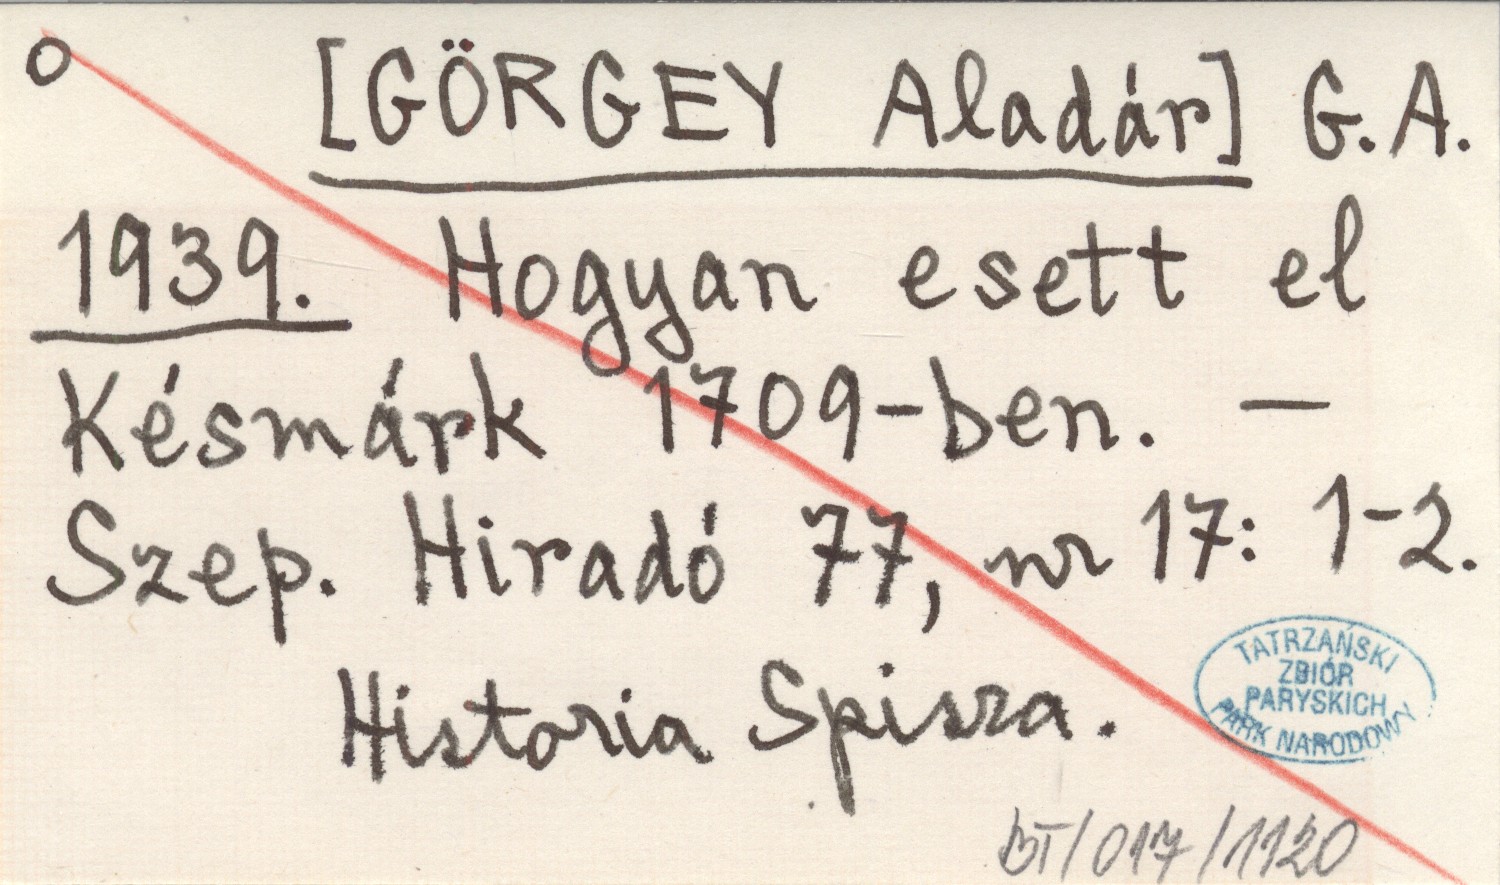 O [GÖRGEY Aladár] G.A.
1939. Hogyan esett el
Késmárk 1709-ben. —
Szep. Hiradó 77, nr 17: 1-2.
Historia Spisza.
TATRZAŃSKI
ZBIÓR
PARYSKICH
PARK NARODOWY
BT/017/1120